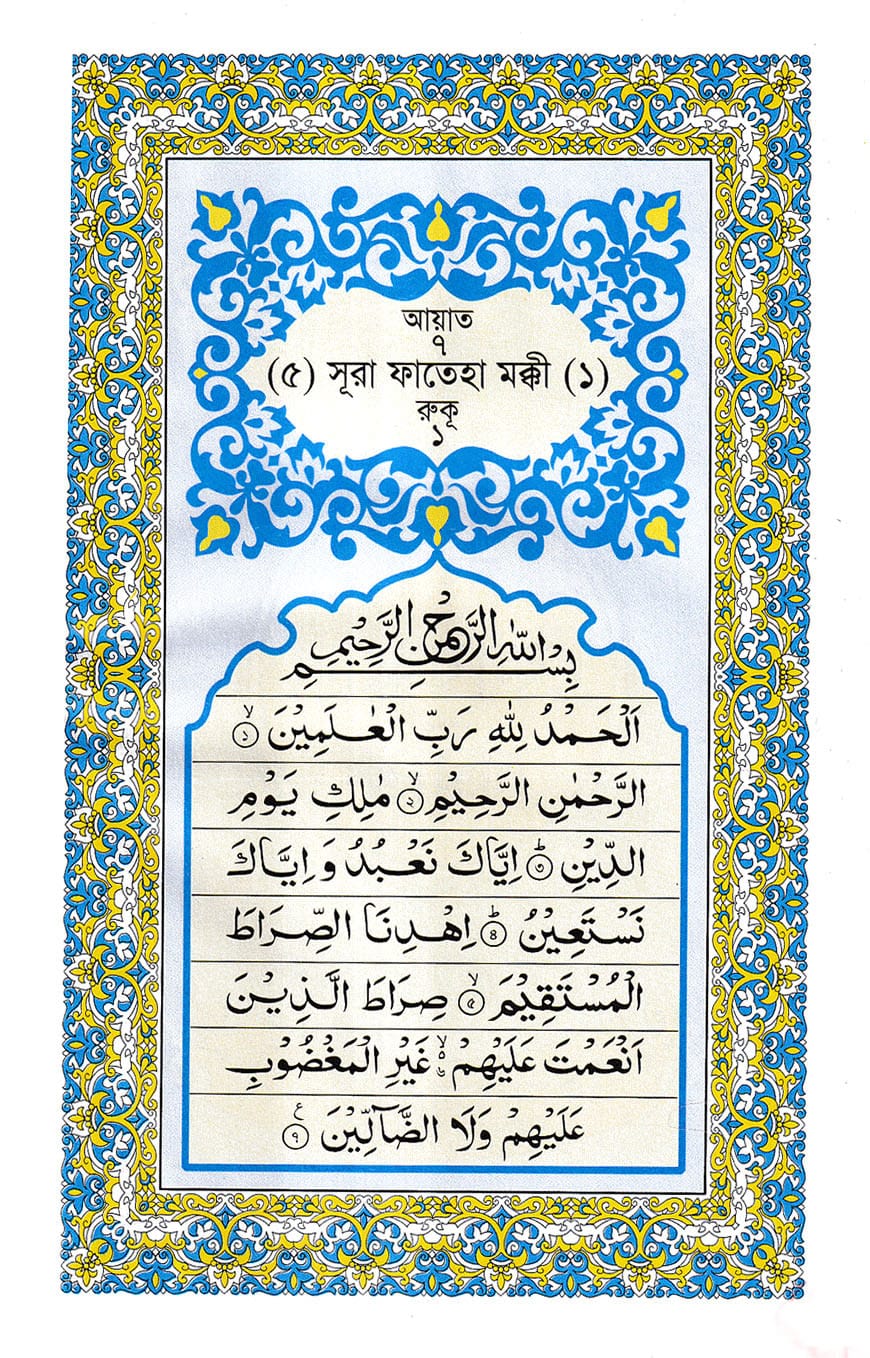 আয়াত
৭
(৫) সূরা ফাতেহা মক্কী (১)
রুকূ
১
بِسْمِ اللّٰهِ الرَّحْمٰنِ الرَّحِيْمِ
اَلْحَمْدُ لِلّٰهِ رَبِّ الْعٰلَمِيْنَ ۙ ১
الرَّحْمٰنِ الرَّحِيْمِ ۙ ২ مٰلِكِ يَوْمِ
الدِّيْنِ ؕ ৩ اِيَّاكَ نَعْبُدُ وَ اِيَّاكَ
نَسْتَعِيْنُ ؕ ৪ اِهْدِنَا الصِّرَاطَ
الْمُسْتَقِيْمَ ۙ ৫ صِرَاطَ الَّذِيْنَ
اَنْعَمْتَ عَلَيْهِمْ ۙ غَيْرِ الْمَغْضُوْبِ
عَلَيْهِمْ وَلَا الضَّآلِّيْنَ ৭